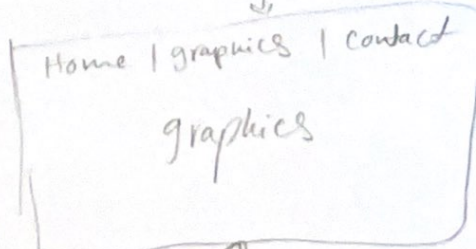 Home | graphics | Contact
graphics